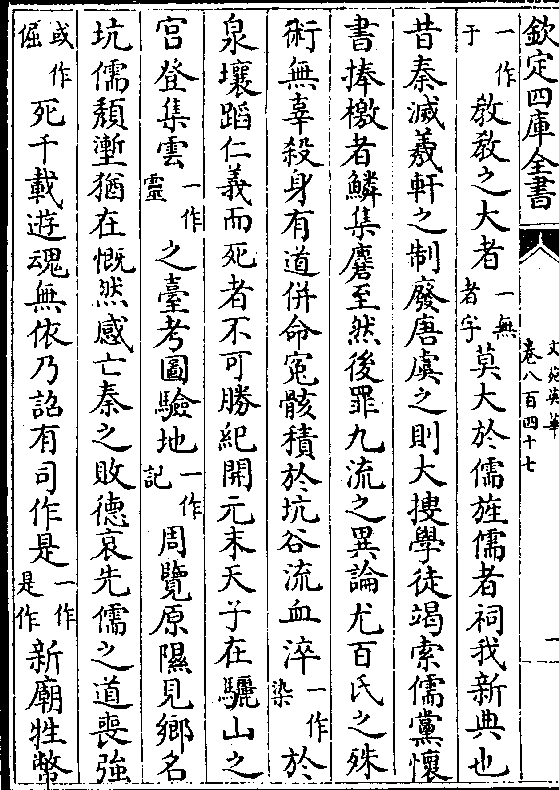 欽定四庫全書
文苑英華
卷八百四十七
一
一作于敎敎之大者一無者字莫大於儒旌儒者祠我新典也
昔秦滅羲軒之制廢唐虞之則大搜學徒竭索儒黨懷
書捧檄者鱗集麏至然後罪九流之異論尤百氏之殊
術無辜殺身有道併命寃骸積於坑谷流血淬一作染於
泉壤蹈仁義而死者不可勝紀開元末天子在驪山之
宮登集雲一作靈之臺考圖驗地一作記周覽原隰見鄉名
坑儒頹壍猶在慨然感亡秦之敗德哀先儒之道喪強
或作倔死千載遊魂無依乃詔有司作是一作是作新廟牲幣